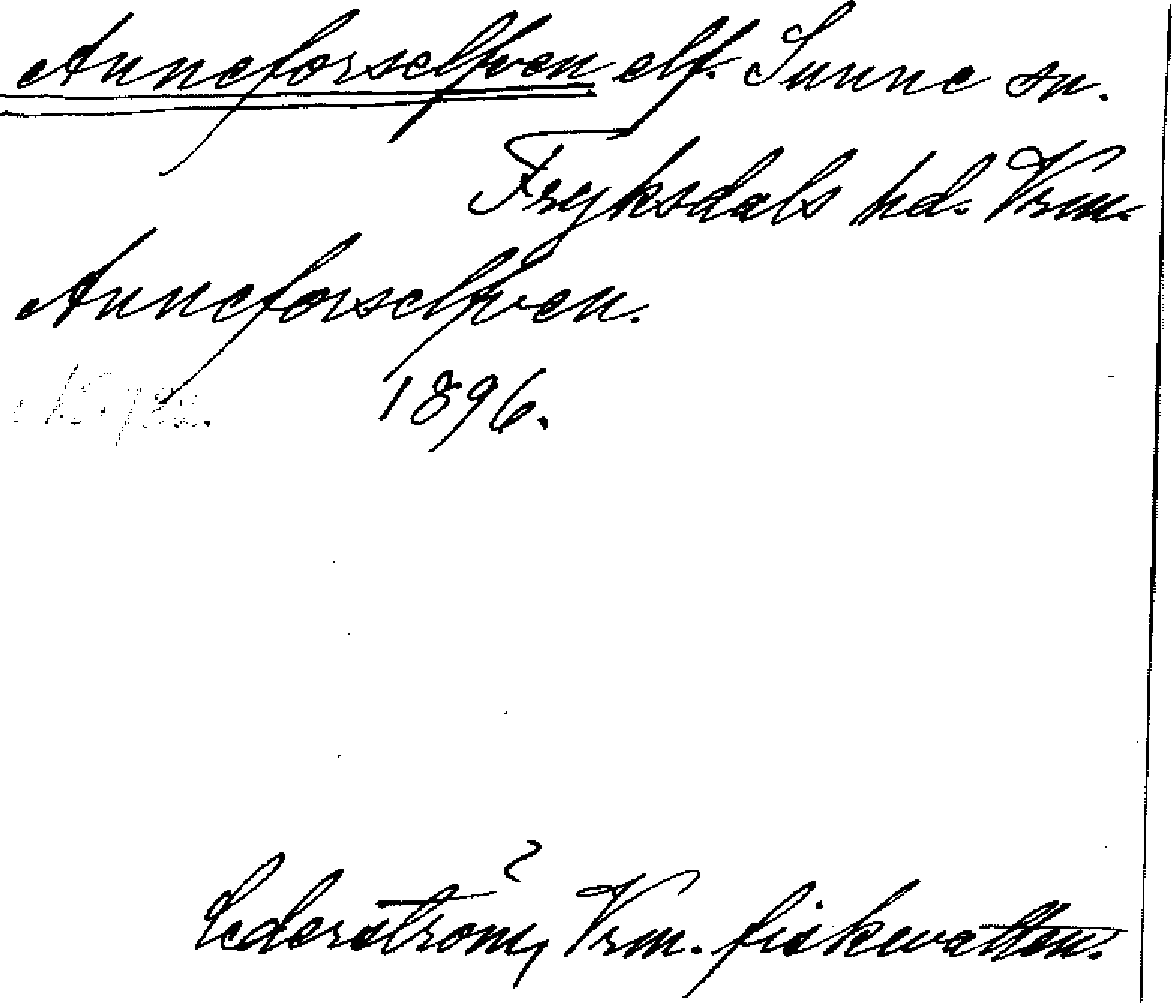 Anneforselfven elf. Sunne sn.
Fryksdals hd. Vrm.
Anneforselfven.
1896.
Cederström, Vrm. fiskevatten.